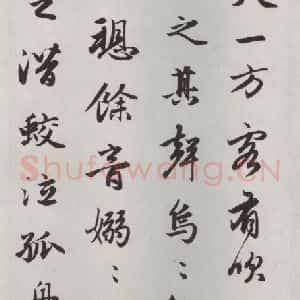 天一方客有吹
之其聲烏〻
愬餘音嫋〻
之潛鮫泣孤舟
Shufawang.CN